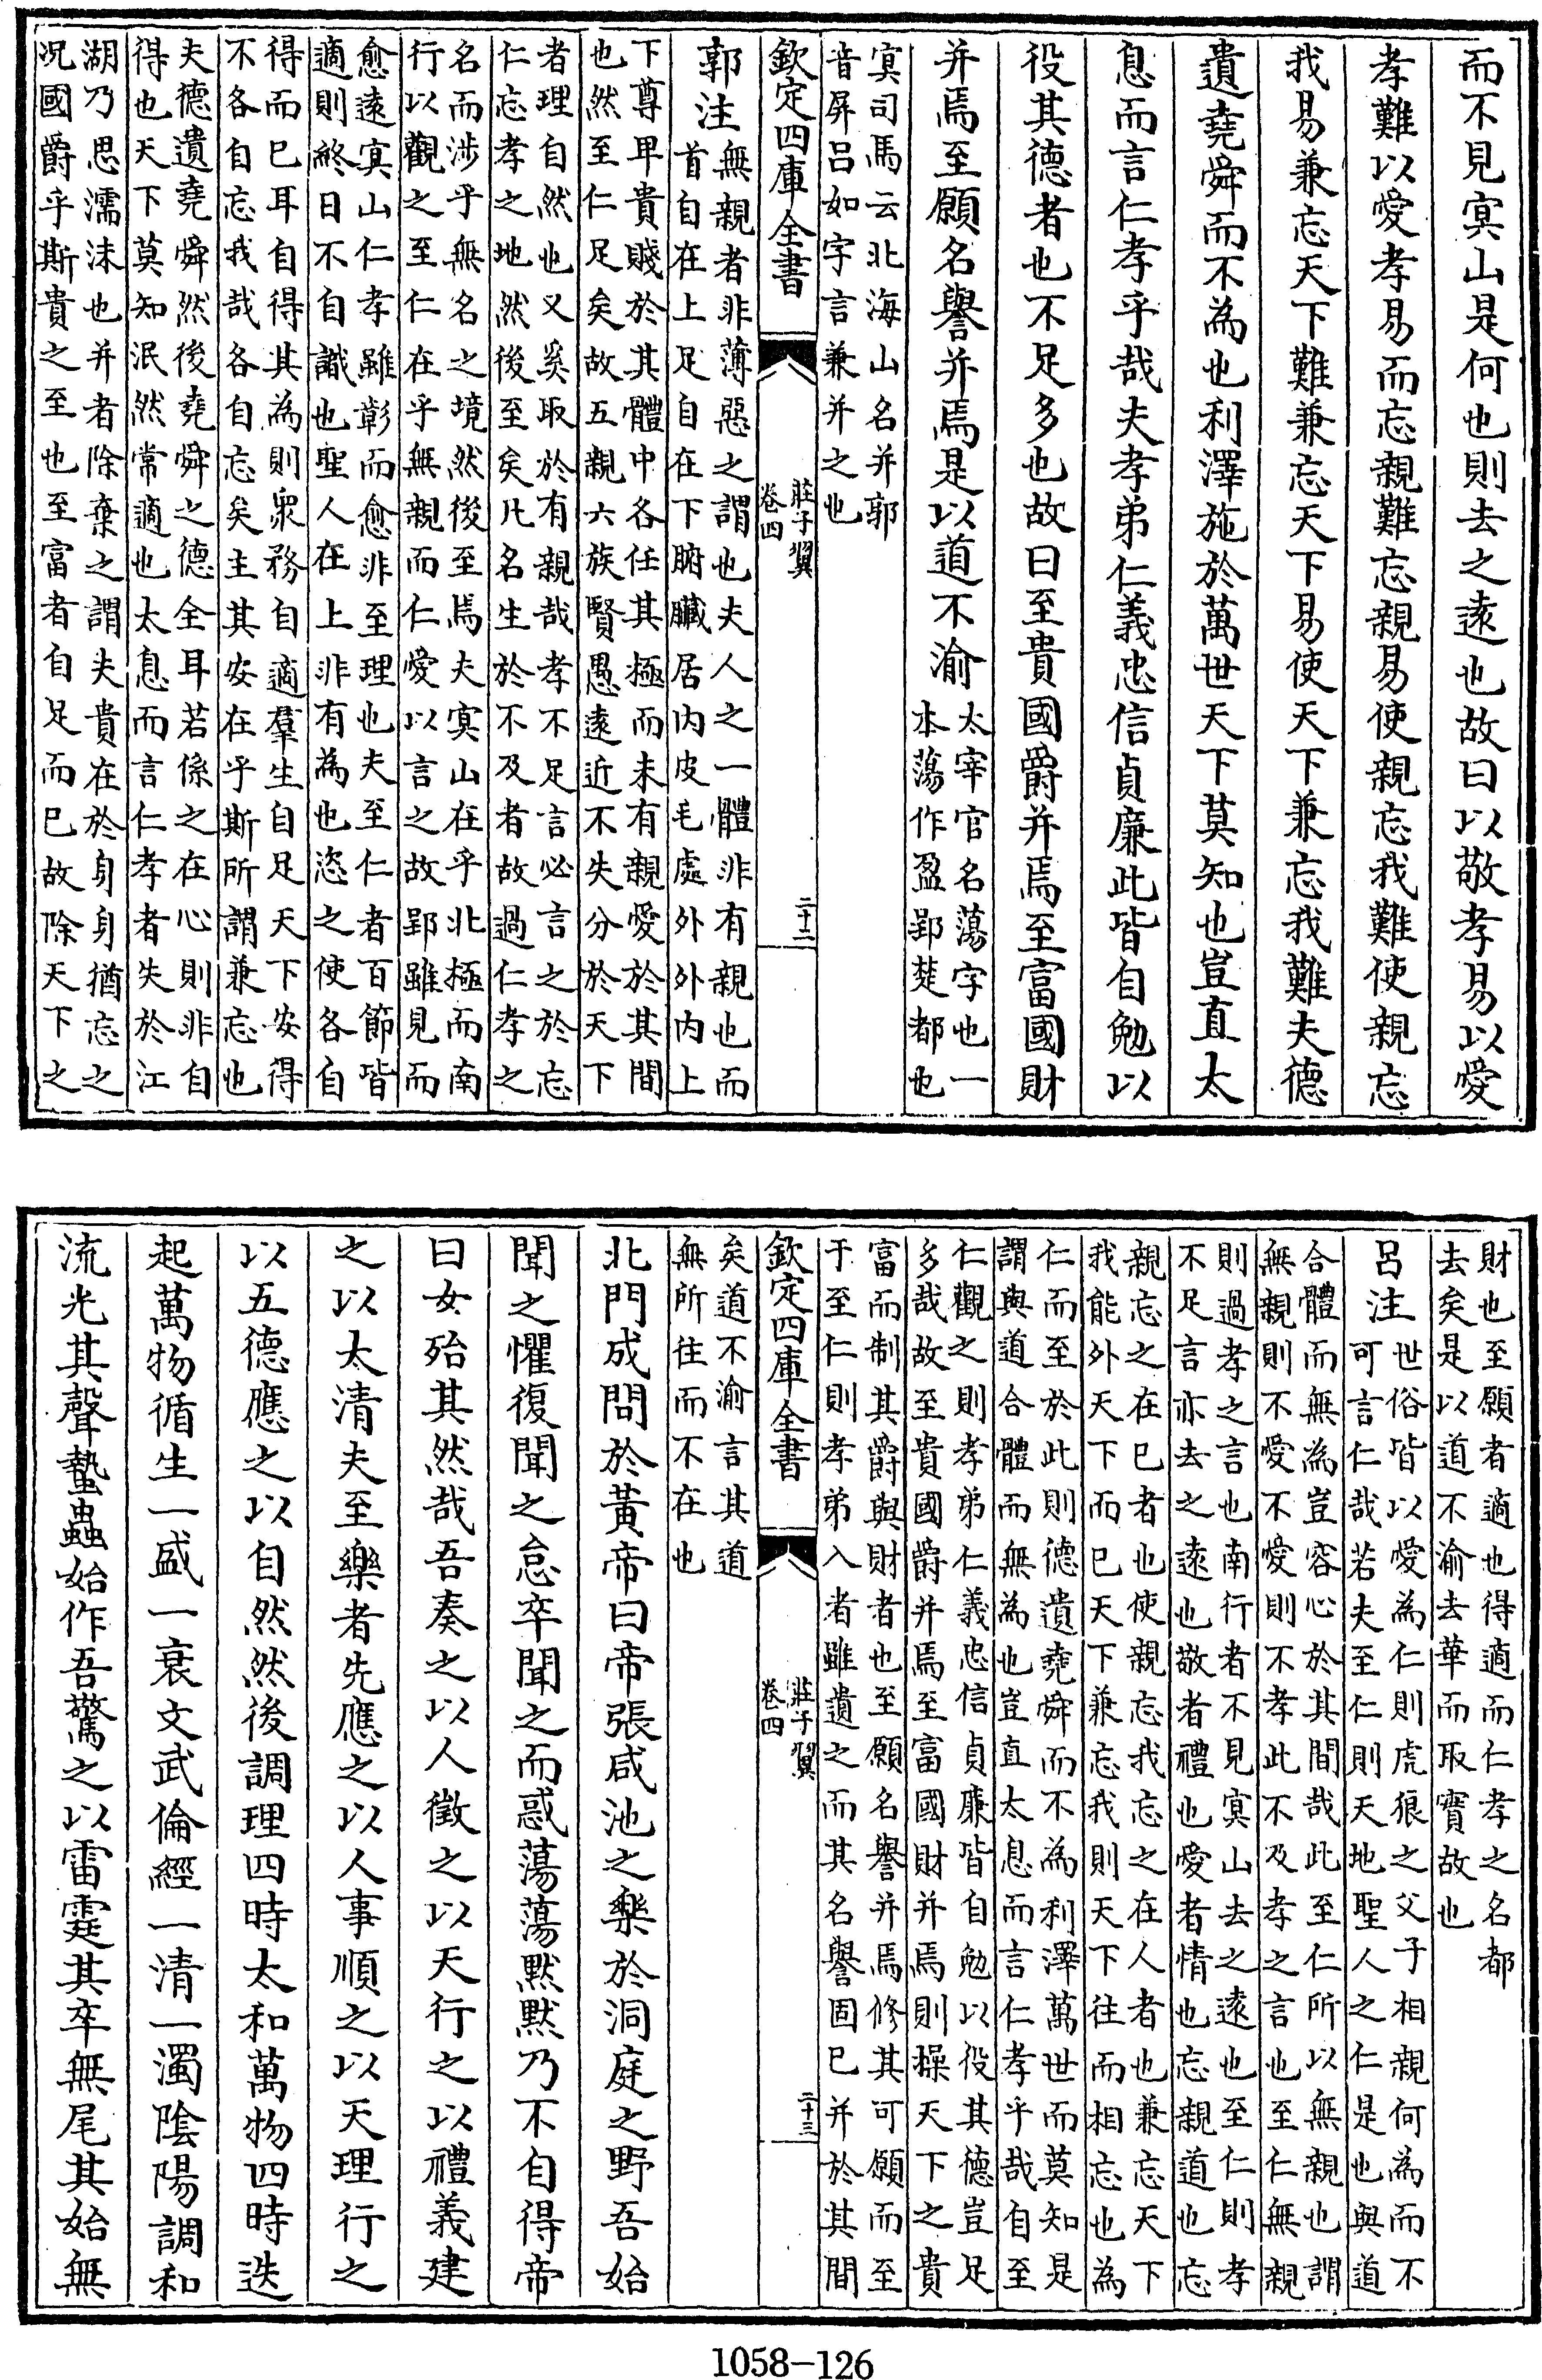 而不見㝠山是何也則去之逺也故曰以敬孝易以愛
孝難以愛孝易而忘親難忘親易使親忘我難使親忘
我易兼忘天下難兼忘天下易使天下兼忘我難夫德
遺堯舜而不為也利澤施於萬世天下莫知也豈直太
息而言仁孝乎哉夫孝弟仁義忠信貞廉此皆自勉以
役其德者也不足多也故曰至貴國爵并焉至富國財
并焉至願名譽并焉是以道不渝
太宰官名蕩字也一
本蕩作盈郢楚都也
㝠司馬云北海山名并郭
音屏吕如字言兼并之也
欽定四庫全書
莊子翼
卷四
二十二
郭注
無親者非薄惡之謂也夫人之一體非有親也而
首自在上足自在下腑臟居内皮毛處外外内上
下尊卑貴賤於其體中各任其極而未有親愛於其間
也然至仁足矣故五親六族賢愚逺近不失分於天下
者理自然也又奚取於有親哉孝不足言必言之於忘
仁忘孝之地然後至矣凡名生於不及者故過仁孝之
名而涉乎無名之境然後至焉夫㝠山在乎北極而南
行以觀之至仁在乎無親而仁愛以言之故郢雖見而
愈逺㝠山仁孝雖彰而愈非至理也夫至仁者百節皆
適則終日不自識也聖人在上非有為也恣之使各自
得而已耳自得其為則衆務自適羣生自足天下安得
不各自忘我哉各自忘矣主其安在乎斯所謂兼忘也
夫德遺堯舜然後堯舜之德全耳若係之在心則非自
得也天下莫知泯然常適也太息而言仁孝者失於江
湖乃思濡沫也并者除棄之謂夫貴在於身身猶忘之
况國爵乎斯貴之至也至富者自足而已故除天下之
財也至願者適也得適而仁孝之名都
去矣是以道不渝去華而取實故也
吕注
世俗皆以愛為仁則虎狼之父子相親何為而不
可言仁哉若夫至仁則天地聖人之仁是也與道
合體而無為豈容心於其間哉此至仁所以無親也謂
無親則不愛不愛則不孝此不及孝之言也至仁無親
則過孝之言也南行者不見㝠山去之逺也至仁則孝
不足言亦去之逺也敬者禮也愛者情也忘親道也忘
親忘之在已者也使親忘我忘之在人者也兼忘天下
我能外天下而已天下兼忘我則天下往而相忘也為
仁而至於此則德遺堯舜而不為利澤萬世而莫知是
謂與道合體而無為也豈直太息而言仁孝乎哉自至
仁觀之則孝弟仁義忠信貞廉皆自勉以役其德豈足
多哉故至貴國爵并焉至富國財并焉則操天下之貴
富而制其爵與財者也至願名譽并焉修其可願而至
于至仁則孝弟入者雖遺之而其名譽固已并於其間
欽定四庫全書
莊子翼
卷四
二十三
矣道不渝言其道
無所往而不在也
北門成問於黄帝曰帝張咸池之樂於洞庭之野吾始
聞之懼復聞之怠卒聞之而惑蕩蕩黙黙乃不自得帝
曰女殆其然哉吾奏之以人徵之以天行之以禮義建
之以太清夫至樂者先應之以人事順之以天理行之
以五德應之以自然然後調理四時太和萬物四時迭
起萬物循生一盛一衰文武倫經一清一濁隂陽調和
流光其聲蟄蟲始作吾驚之以雷霆其卒無尾其始無
1058-126